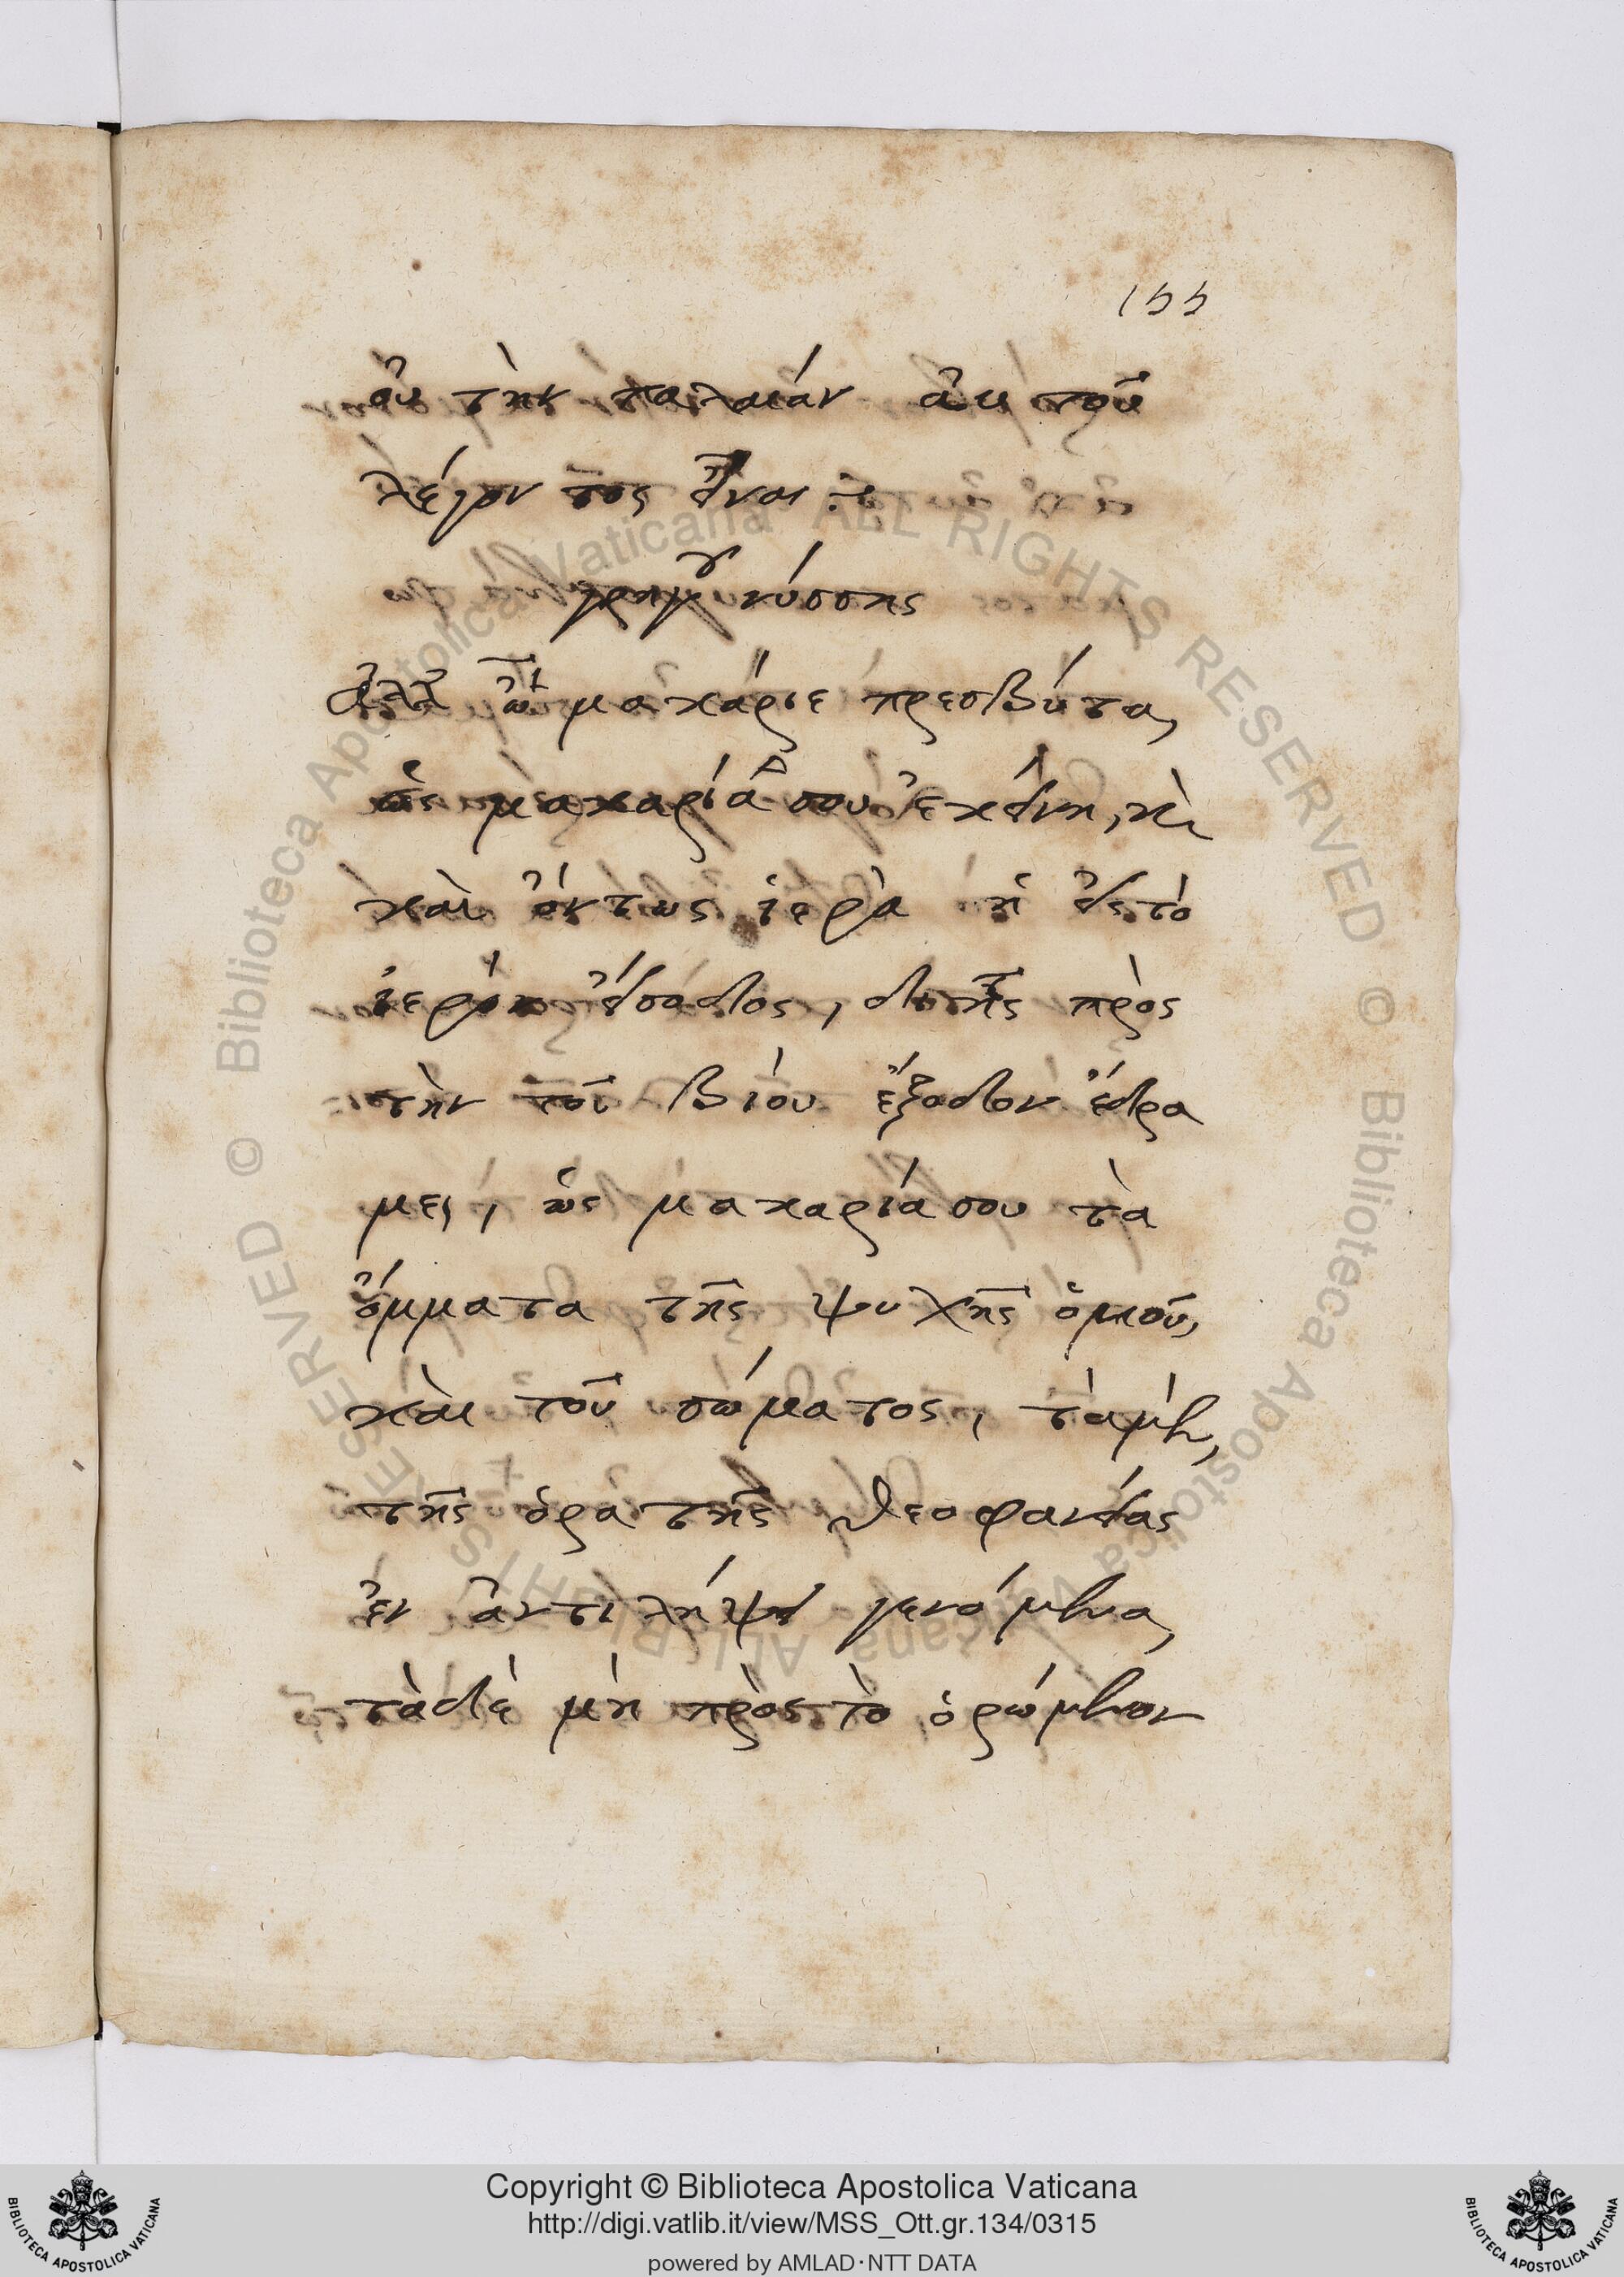 155
οὐ τὴν παλαιάν αὐτοῦ
λέγοντος εἶναι :
γρηγο νύσσης
ἀλλ' ὦ μακάριε πρεσβύτα,
ὡς μακαρία σου ἐκείνη, κ
καὶ ὄντως ἱερὰ ἡ εἰς τὸ
ἱερὸν εἴσοδος, δι' ἧς πρὸς
τὴν τοῦ βίου ἔξοδον ἔδρα
μες, ὡς μακαρία σου τὰ
ὄμματα τῆς ψυχῆς ὁμοῦ,
καὶ τοῦ σώματος, τὰ μὲν,
τῆς ὁρατῆς θεοφανείας
ἐν ἀντιλήψει γενόμενα,
τὰ δὲ μὴ πρὸς τὸ ὁρώμενον
Copyright © Biblioteca Apostolica Vaticana
http://digi.vatlib.it/view/MSS_Ott.gr.134/0315
powered by AMLAD·NTT DATA
BIBLIOTECA APOSTOLICA VATICANA
BIBLIOTECA APOSTOLICA VATICANA
© Biblioteca Apostolica Vaticana ALL RIGHTS RESERVED © Biblioteca Apostolica Vaticana ALL RIGHTS RESERVED